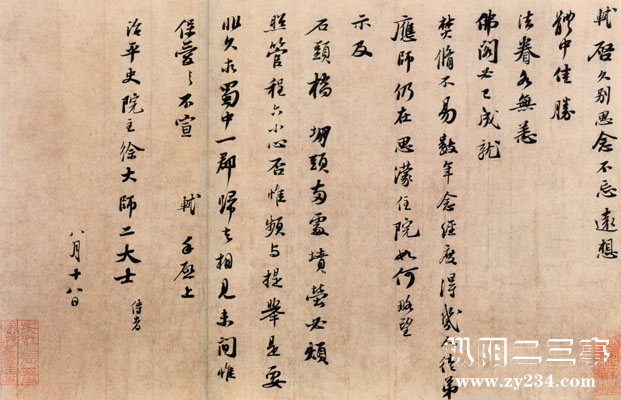 軾啓久别思念不忘遠想
體中佳勝
法眷各無恙
佛閣必已成就
焚脩不易數年念經度得幾人徒弟
應師仍在思濛住院如何略望
示及
石頭橋堋頭兩處墳塋必煩
照管程六小心否惟頻与提舉是要
非久求蜀中一郡歸去相見未間惟
保愛之不宣 軾手啓上
治平史院主徐大師二大士 侍者
八月十八日
www.zy234.com